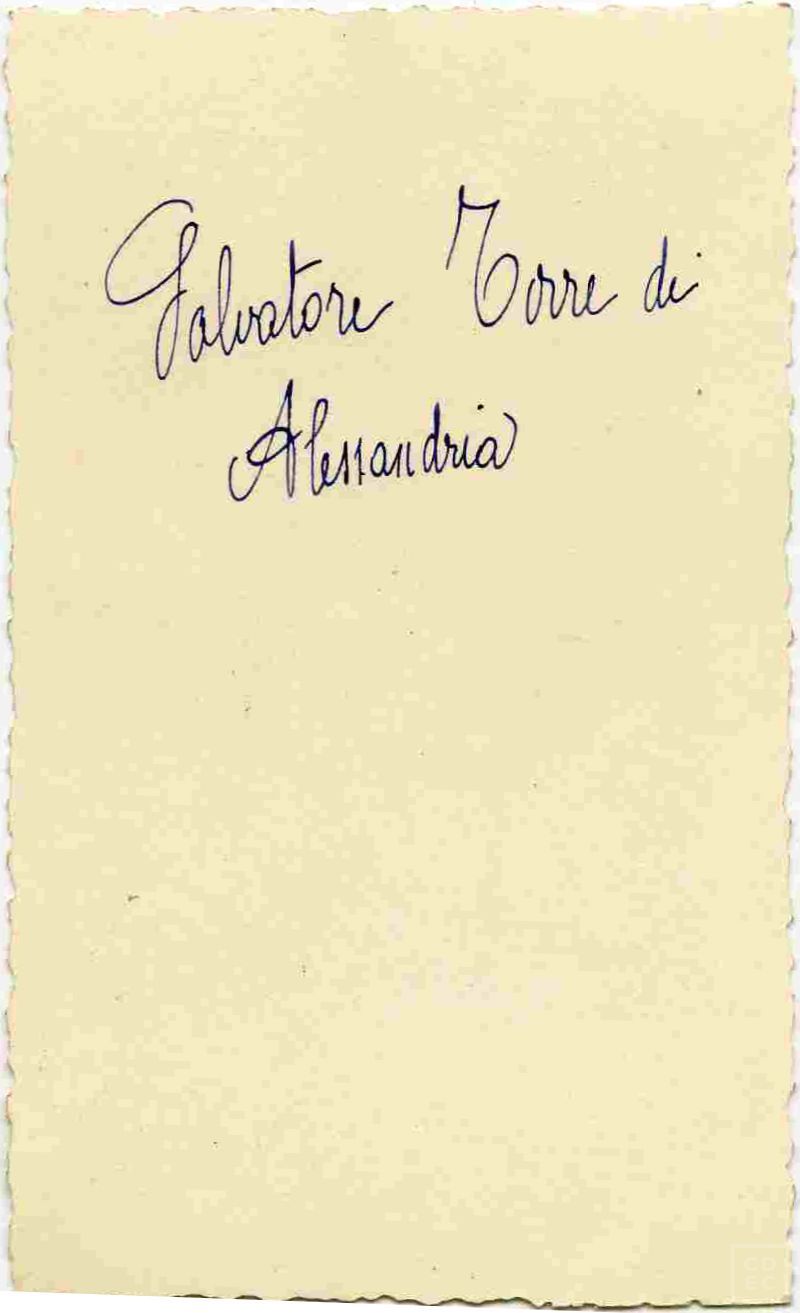 Salvatore Torre di
Alessandria
CD
EC